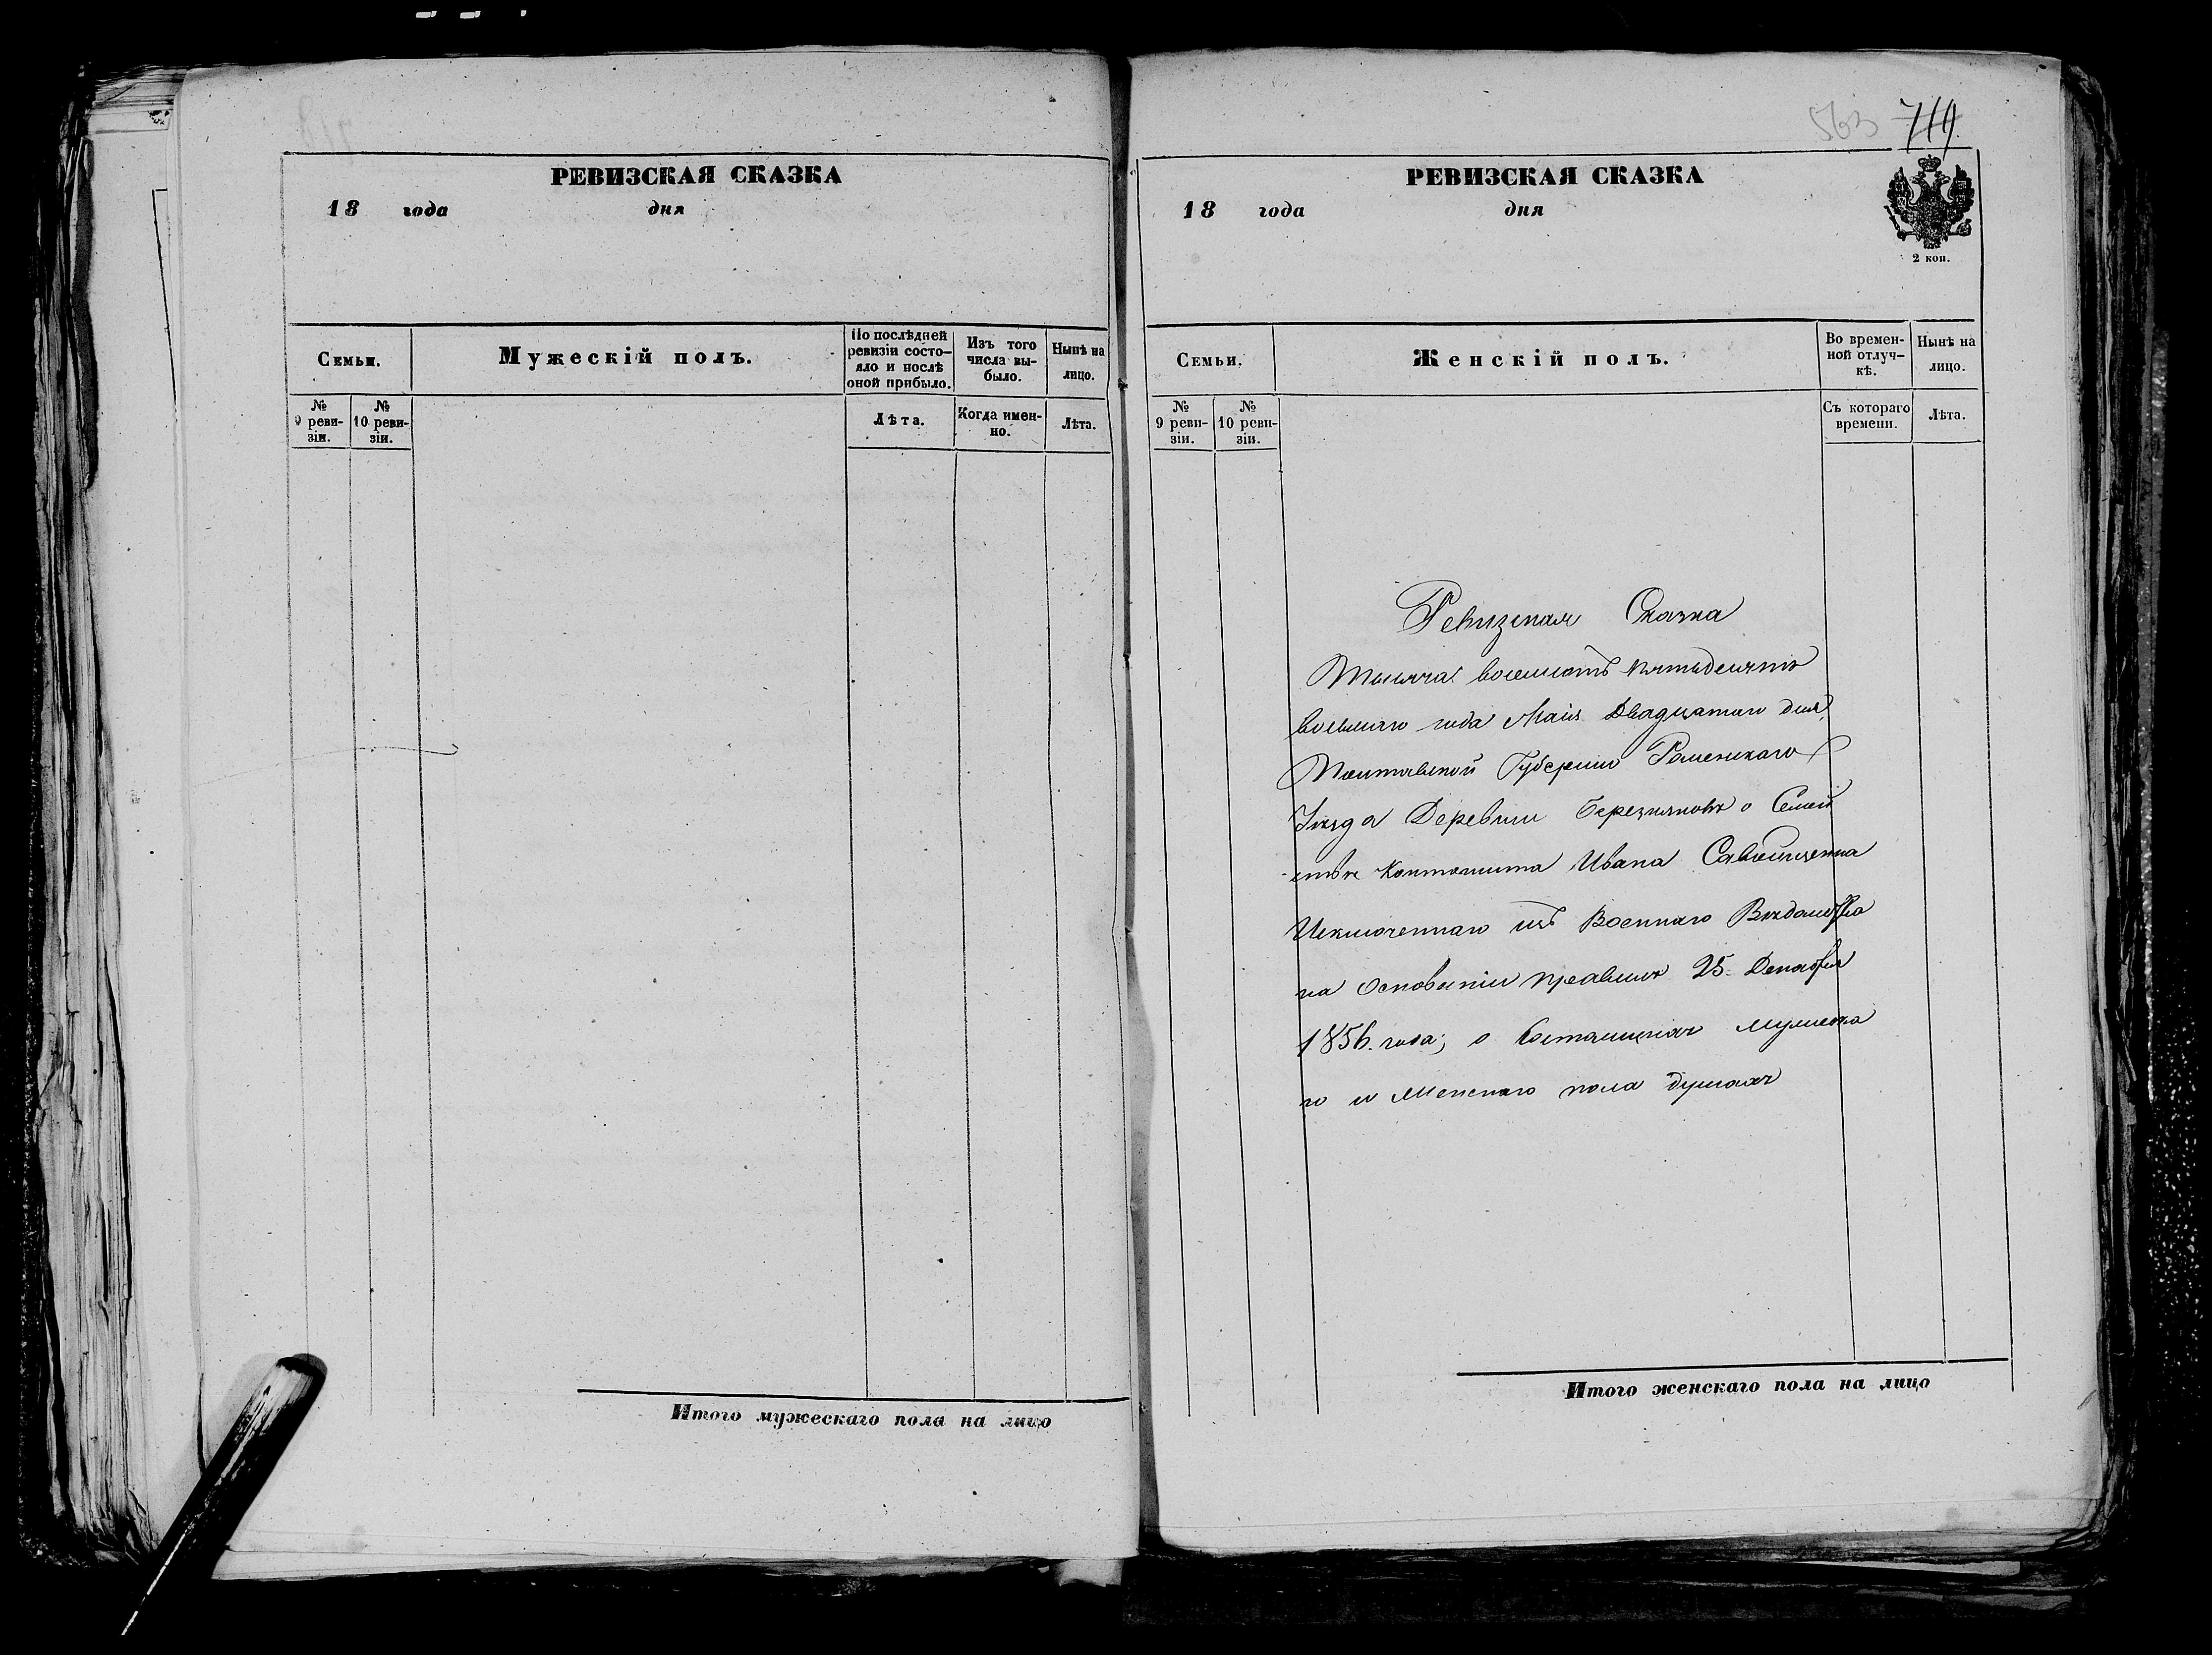 РЕВИЗСКАЯ СКАЗКА
18 года дня
Семьи.
Мужескій полъ.
По послѣдней ревизіи состо-
яло и послѣ оной прибыло.
Изъ того числа вы-
было.
Нынѣ на лицо.
№ 9 реви-
зіи.
№ 10 реви-
зіи.
Лѣта.
Когда имен-
но.
Лѣта.
Итого мужескаго пола на лицо
563 719.
РЕВИЗСКАЯ СКАЗКА
18 года дня
2 коп.
Семьи.
Женскій полъ.
Во времен-
ной отлуч-
кѣ.
Нынѣ на лицо.
№ 9 реви-
зіи.
№ 10 реви-
зіи.
Съ котораго времени.
Лѣта.
Ревизская Сказка
Тысяча восемсотъ пятьдесятъ
восьмаго года Маія Двадцатаго дня,
Полтавской Губерніи Роменскаго
Уѣзда Деревни Березняковъ о Семей
ствѣ Кантониста Ивана
Исключеннаго изъ Военнаго Вѣдомства
на основаніи правилъ 25 Декабря
1856. года; о состоящихъ мужеска
го и Женскаго пола душахъ
Итого женскаго пола на лицо